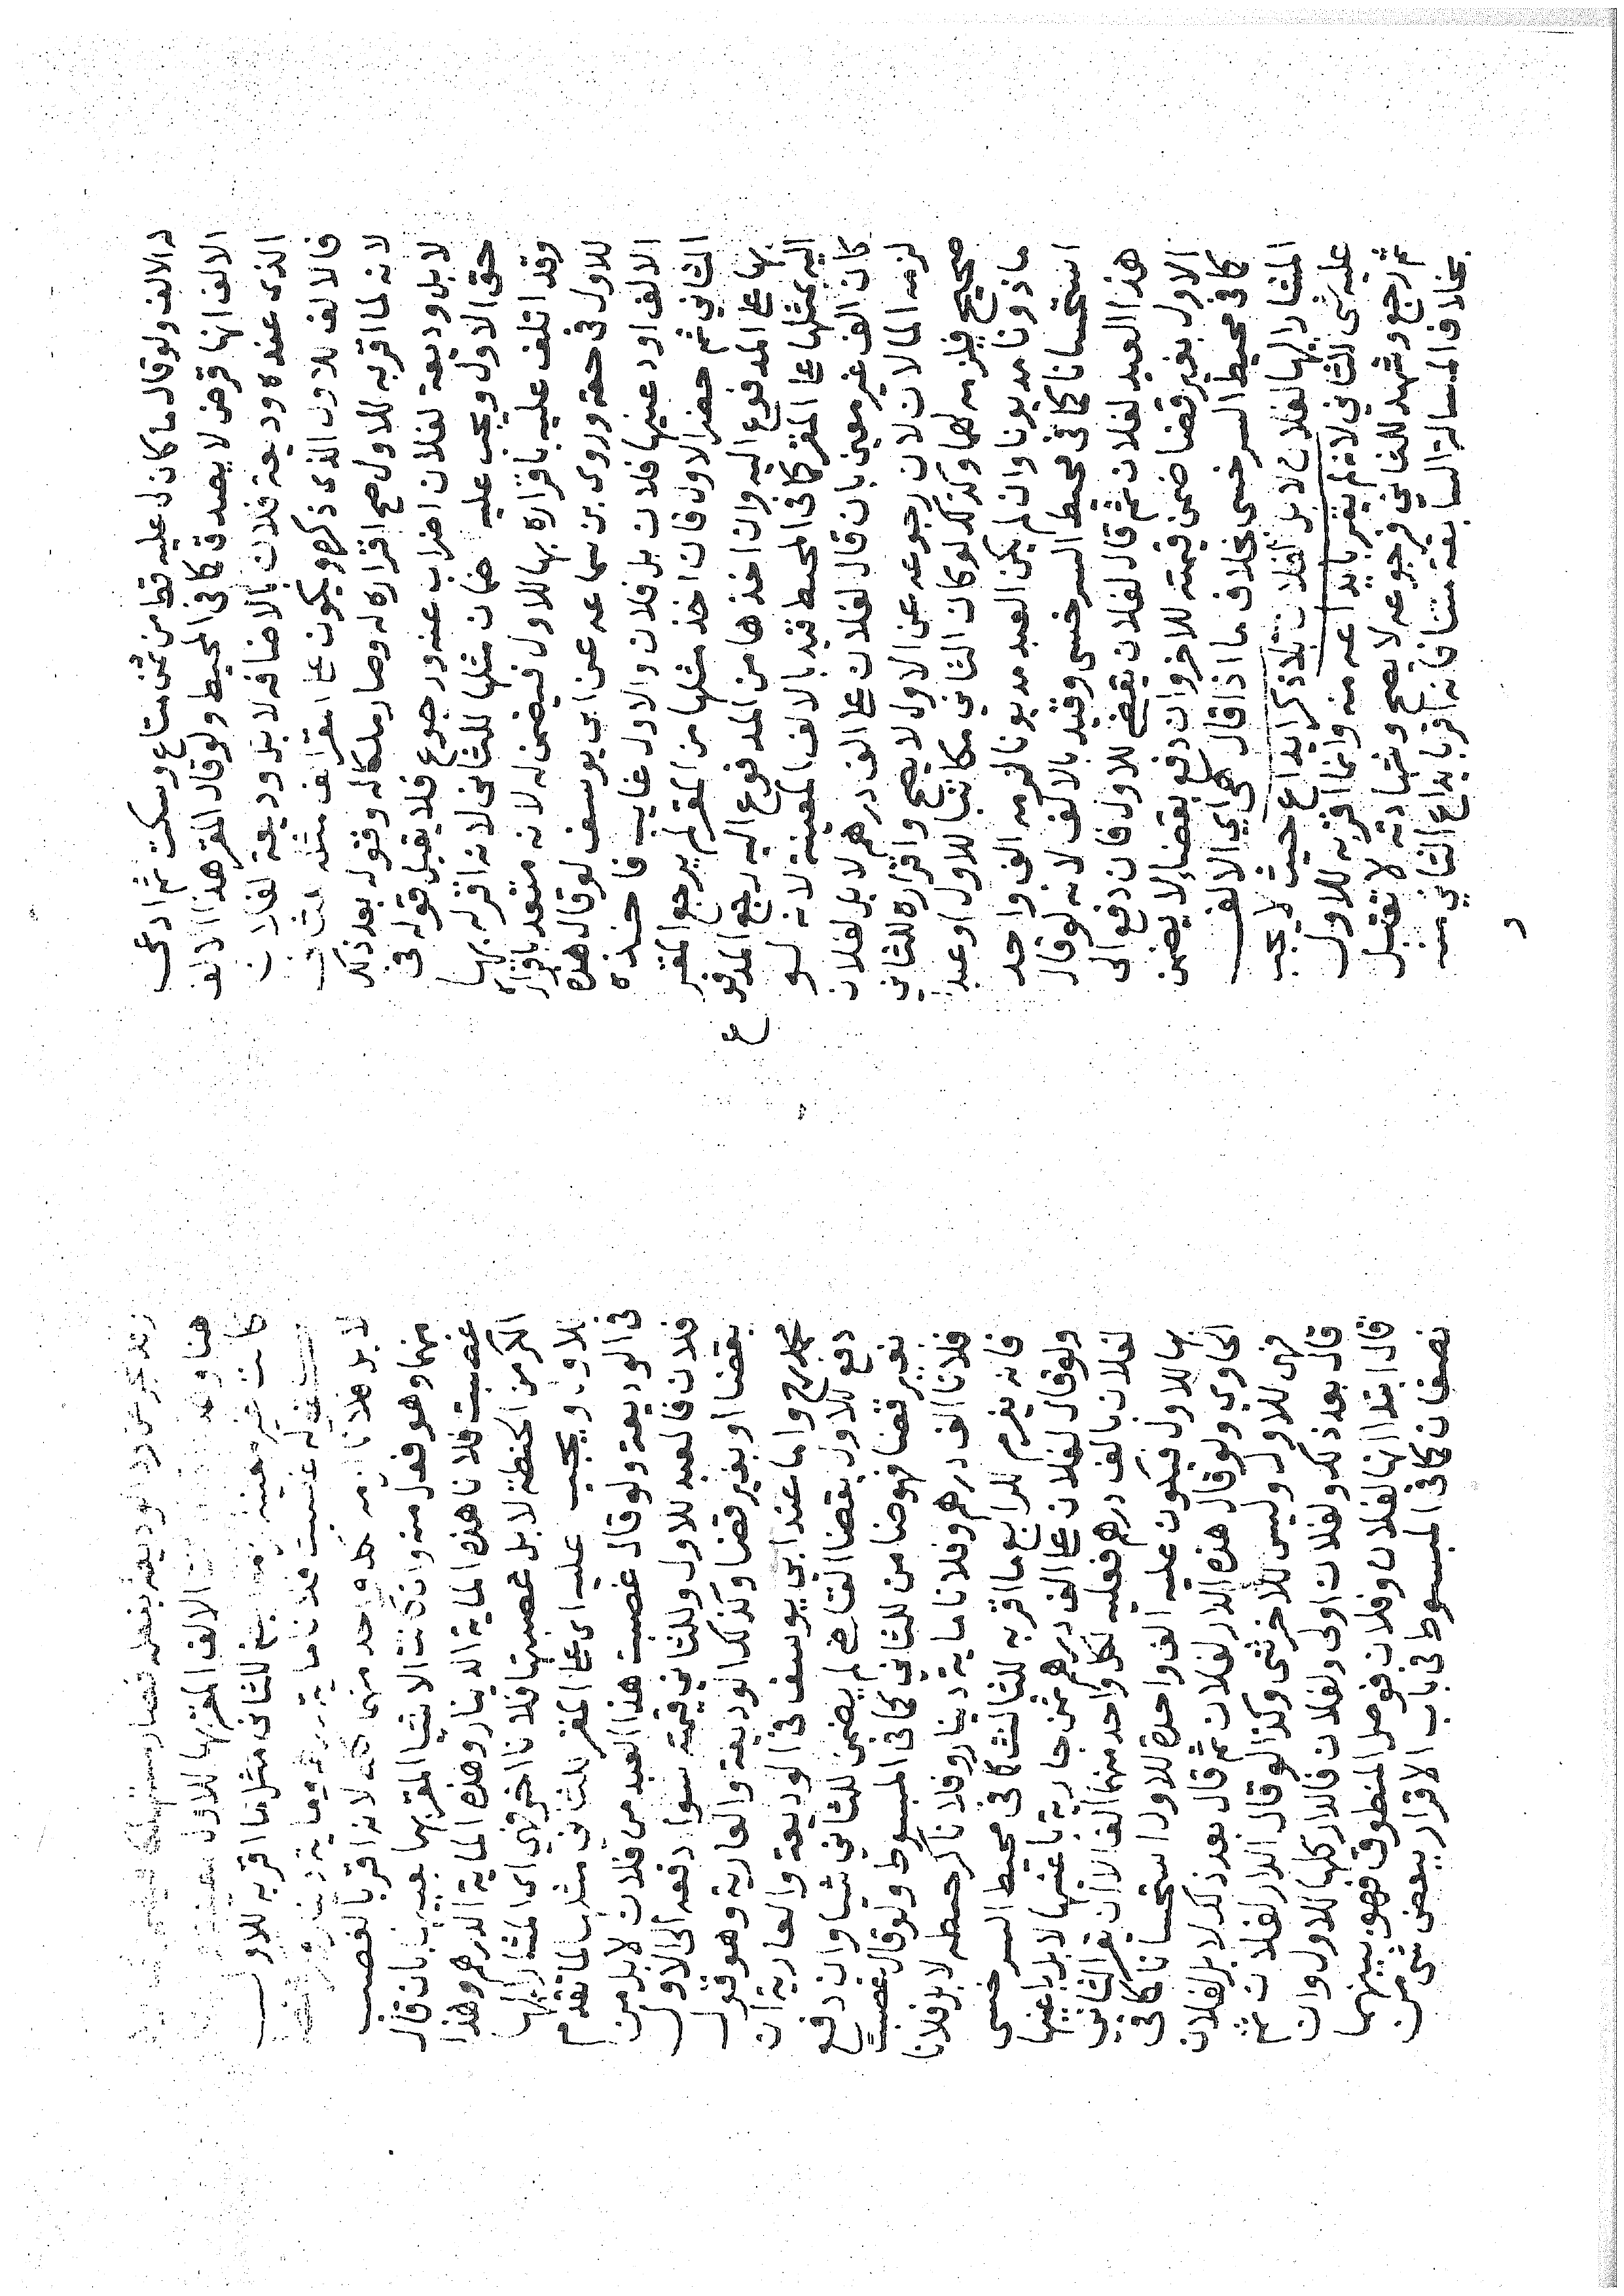 د الالف ولو قال ما كان له عليه قط من ثمن متاع وسكت ثم ادعى
الالف انها قرض لا يصدق كما فى المحيط ولو قال المقر هذا الالف
الذى عنده وديعة فلان بالاضافه لا بل وديعة لفلان
فالالف للاول الذى ذكره ويكون على المقر الف مثله للثانى
لانه لما اقر به للاول صح اقراره له وصار ملكا له وقوله بعد ذلك
لا بل وديعة لفلان اضراب عنه ورجوع فلا يقبل قوله فى
حق الاول ويجب عليه ضمان مثلها للثانى لانه اقر له بها
وقد اتلف عليه باقراره بها للاول فيضمن له لانه متعد باقراره
للاول فى حقه وروى بن سماعه عن ابى يوسف لو قال هذه
الالف اودعنيها فلان بل فلان والاول غايب فاخذه
الثانى ثم حضر الاول فان اخذ مثلها من المقر لم يرجع المقر
بها على المدفوع اليه وان اخذها من المدفوع اليه رجع المدفوع
اليه بمثلها على المقر كما فى المحيط قيد بالالف المعينة لانه لو
كان الف غير معين بان قال لفلان على الف درهم لا بل لفلان
لزمه المالان لان رجوعه عن الاول لا يصح واقراره للثانى
صحيح فيلزمه لهما وكذلك لو كان الثانى مكاتبا للاول او عبدا
ماذونا مديونا وان لم يكن العبد مديونا لزمه الف واحد
استحسانا كما فى محيط السرخسى وقيد بالالف لانه لو قال
هذا العبد لفلان ثم قال لفلان يقضى للاول فان دفع الى
الاول بغير قضا ضمن قيمته للاخر وان دفع بقضاء لا يضمن
كما فى محيط السرخسى بخلاف ما اذا قال هى اي الالف
المشار اليها لفلان لا بل لفلان بلا ذكر ايداع حيث لا يجب
عليه شى للثاني لانه لم يقر بايداعه منه وانما اقر به للاول
ثم رجع وشهد للثاني فرجوعه لا يصح وشهادته لا تقبل
بخلاف المسالة السابقة متنا فانه اقر بايداع الثاني منه
و
هنا وهذا الالف المقر بها للاول
كانت غير معينه للثانى مثل ما اقر به للاول
غصبت فلانا ماية درهم وماية دينار
لا بل فلانا لزمه لكل واحد منهما كله لانه اقر بالغصب
منهما وهو فعل منه وان كانت الاشيا المقر بها بعينها بان قال
غصبت فلانا هذه الماية الدينار وهذه الماية الدرهم وهذا
الكر من الحنطة لا بل غصبتها فلانا اخر فهي اى المشار اليها
للاول ويجب عليه اى على المقر للثاني مثلها لما تقدم
فى الوديعة ولو قال غصبت هذا العبد من فلان لا بل من
فلان فالعبد للاول وللثاني قيمته سوا دفعه الى الاول
بقضا او بغير قضا وكذلك الوديعة والعارية وهو قول
محمد رح واما عند ابي يوسف فى الوديعة والعارية ان
دفع للاول بقضا القاضى لم يضمن للثاني شيا وان دفع
بغير قضا فهو ضامن للثاني كما فى المبسوط ولو قال غصبت
فلانا الف درهم وفلانا ماية دينار وفلانا كر حنطه لا بل فلانا
فانه يغرم للرابع ما اقر به للثالث كما فى محيط السرخسى
ولو قال لفلان على الف درهم ثمن جارية باعنيها لا بل باعنيها
لفلان بالف درهم فعليه لكل واحد منهما الف الا ان يقر الثاني
بها للاول فيكون عليه الف واحدة للاول استحسانا كما فى
الحاوي ولو قال هذه الدار لفلان ثم قال بعد ذلك لا بل لفلان
فهى للاول وليس للاخر شى وكذا لو قال الدار لفلان ثم
قال بعد ذلك ولفلان اولى ولفلان فالدار كلها للاول وان
قال ابتدا انها لفلان وفلان فوصل المنطوق فهو بينهما
نصفان كما فى المبسوط فى باب الاقرار ببعض شى من